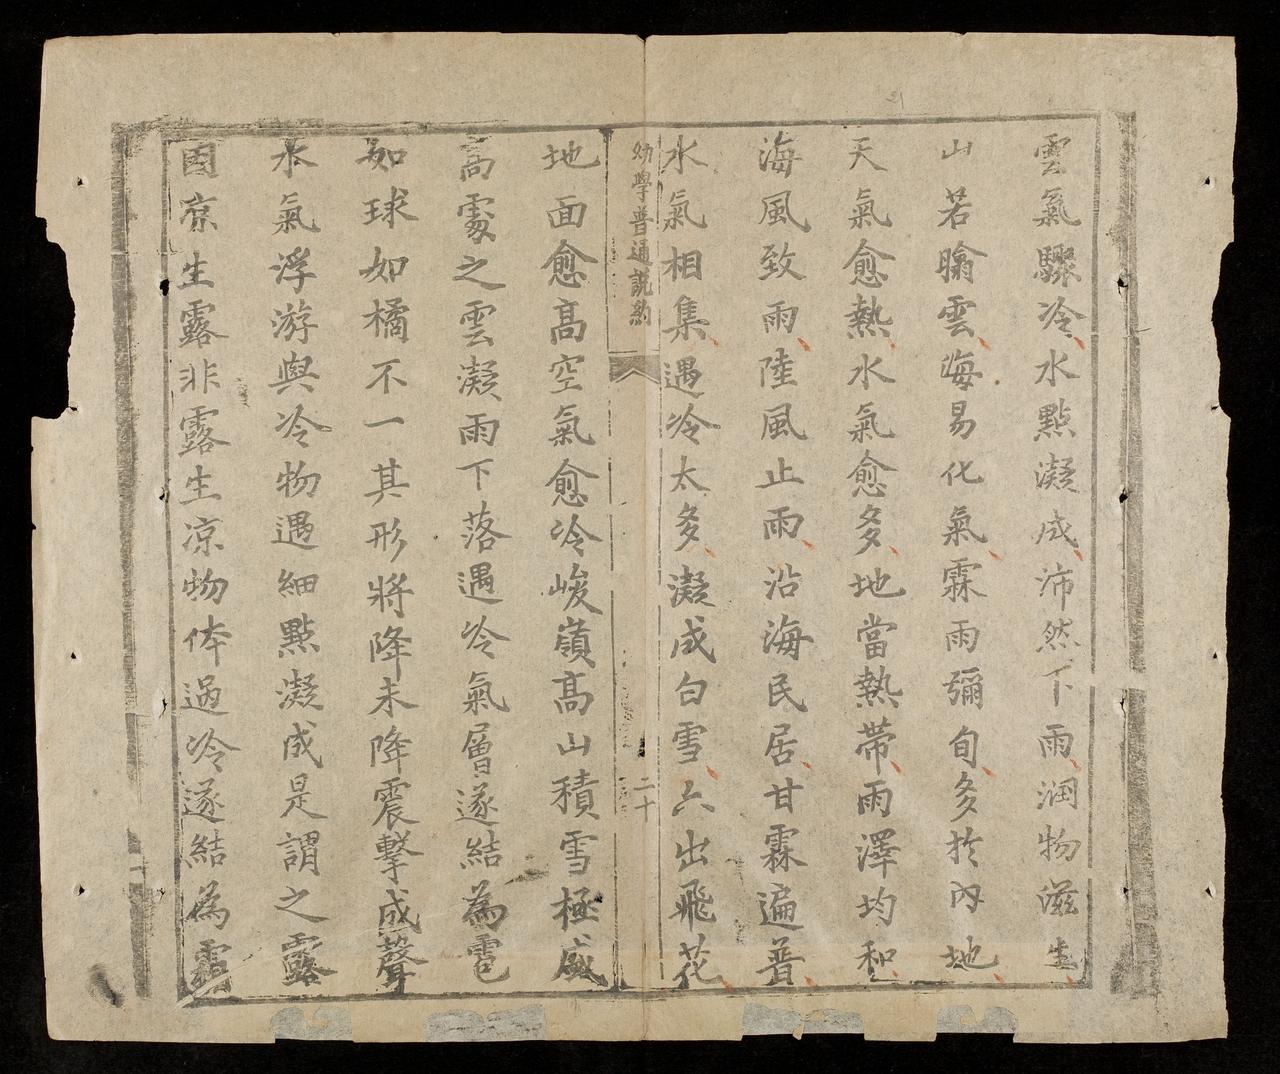 雲氣驟冷水點凝成沛然下雨润物滋生
山若瞈雲海易化氣霖雨彌旬多於内地
天氣愈熱水氣愈多地當熱帶雨澤均和
海風致雨陸風止雨沿海民居甘霖遍普
水氣相集遇冷太多凝成白雪六出飛花
幼學普通説約
二十
地面愈高空氣愈冷峻嶺高山積雪極盛
高處之雲凝雨下落遇冷氣層遂結為雹
如球如橘不一其形將降未降震擊成聲
水氣浮游與冷物遇細點凝成是謂之露
因凉生露非露生凉物体過冷遂結為霜